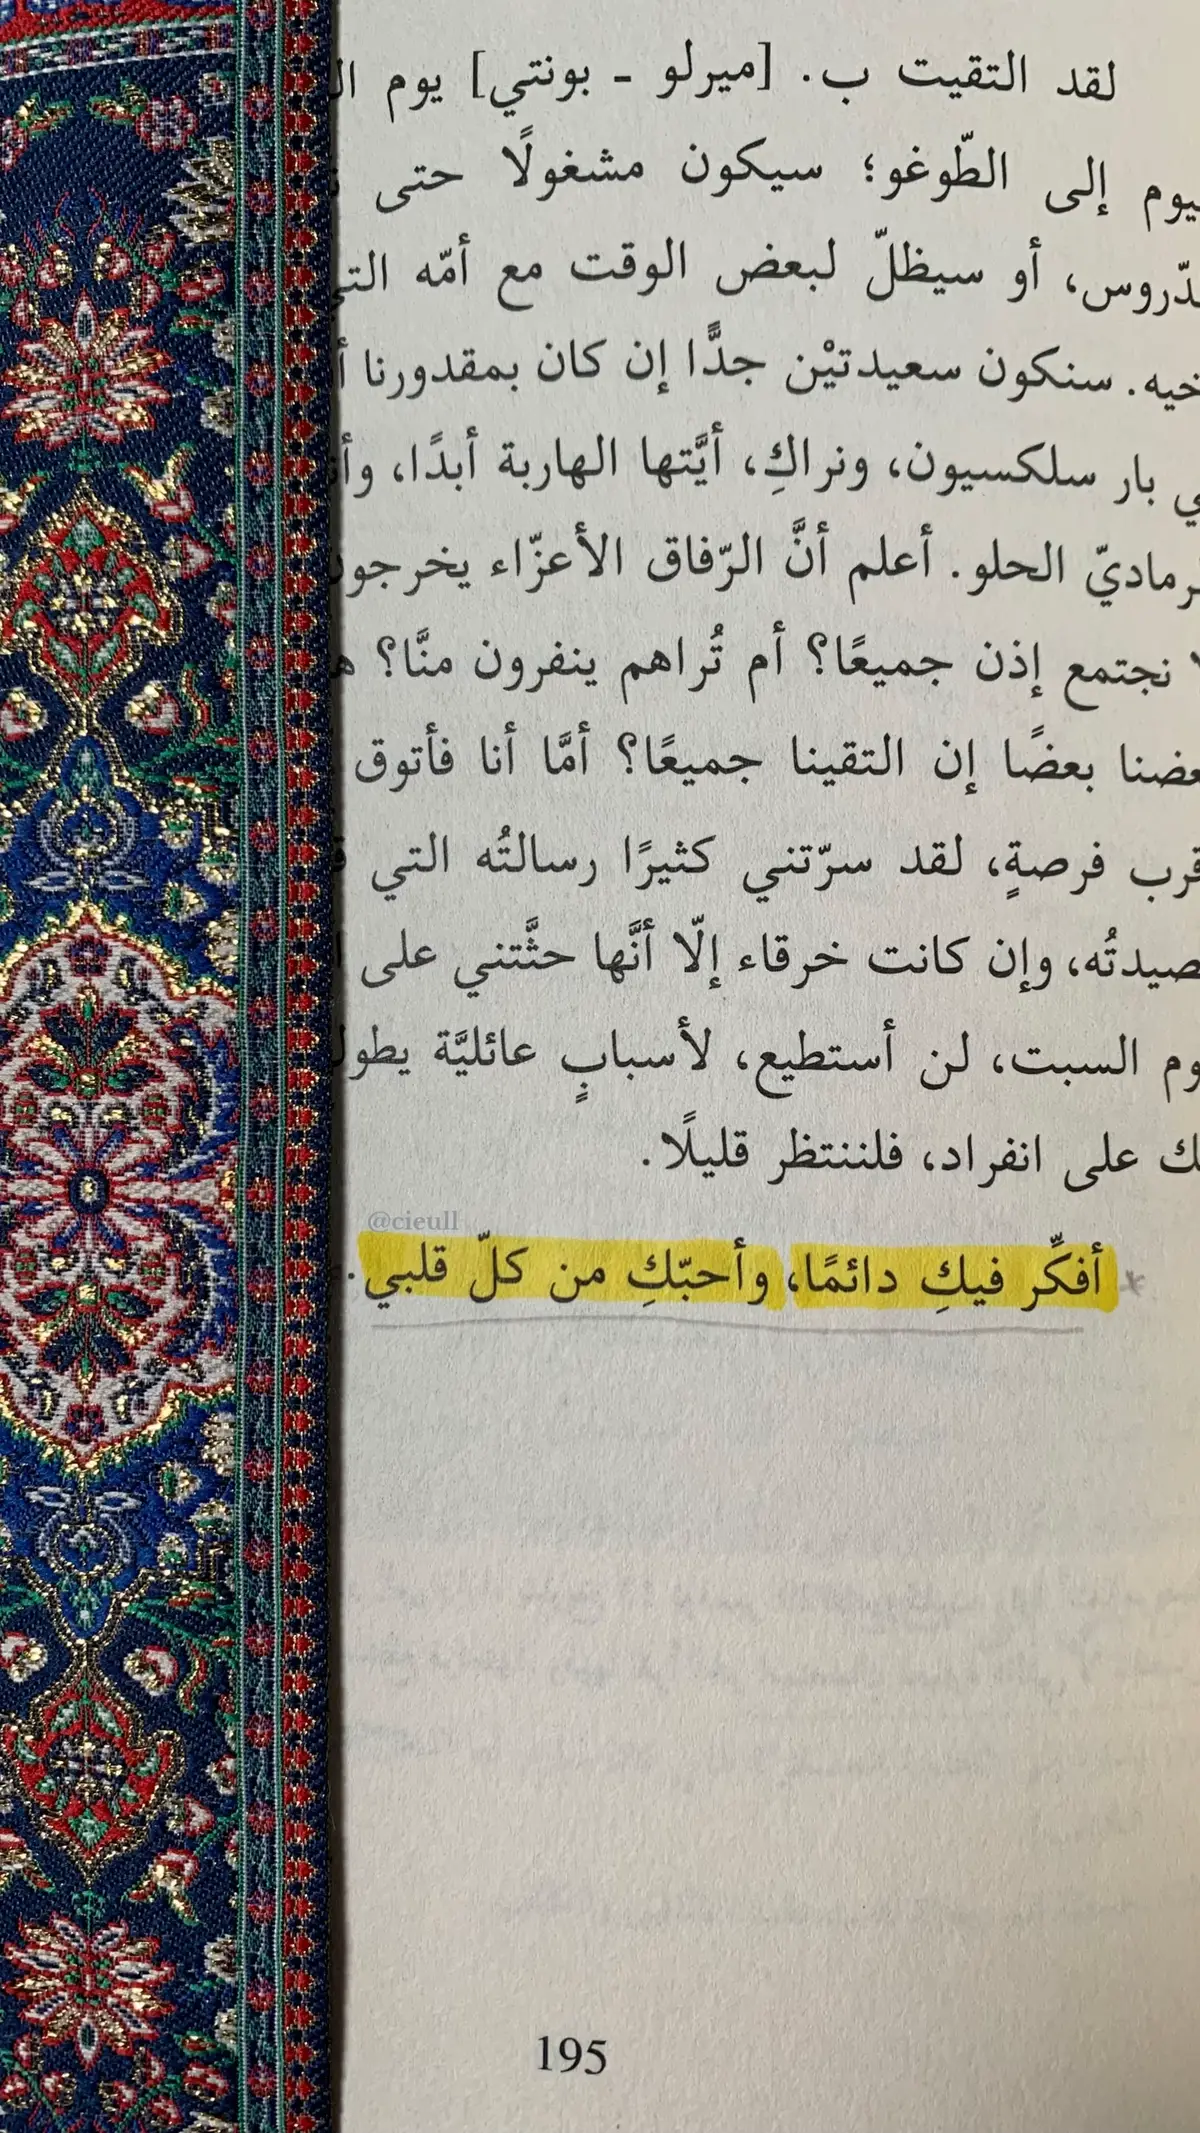 لقد التقيت ب. [ميرلو - بونتي] يوم
إلى الطّوغو؛ سيكون مشغولًا حتى
أو سيظلّ لبعض الوقت مع أمّه
سنكون سعيدتيْن جدًّا إن كان بمقدورنا
بار سلكسيون، ونراكِ، أيَّتها الهاربة أبدًا،
الحلو. أعلم أنَّ الرّفاق الأعزّاء
نجتمع إذن جميعًا؟ أم تُراهم ينفرون منَّا؟
بعضًا إن التقينا جميعًا؟ أمَّا أنا فأتوق
فرصةٍ، لقد سرّتني كثيرًا رسالتُه التي
وإن كانت خرقاء إلّا أنَّها حثَّتني على
السبت، لن أستطيع، لأسبابٍ عائليَّة
على انفراد، فلننتظر قليلًا.
@cieull
أفكِّر فيكِ دائمًا، وأحبّكِ من كلّ قلبي.
195